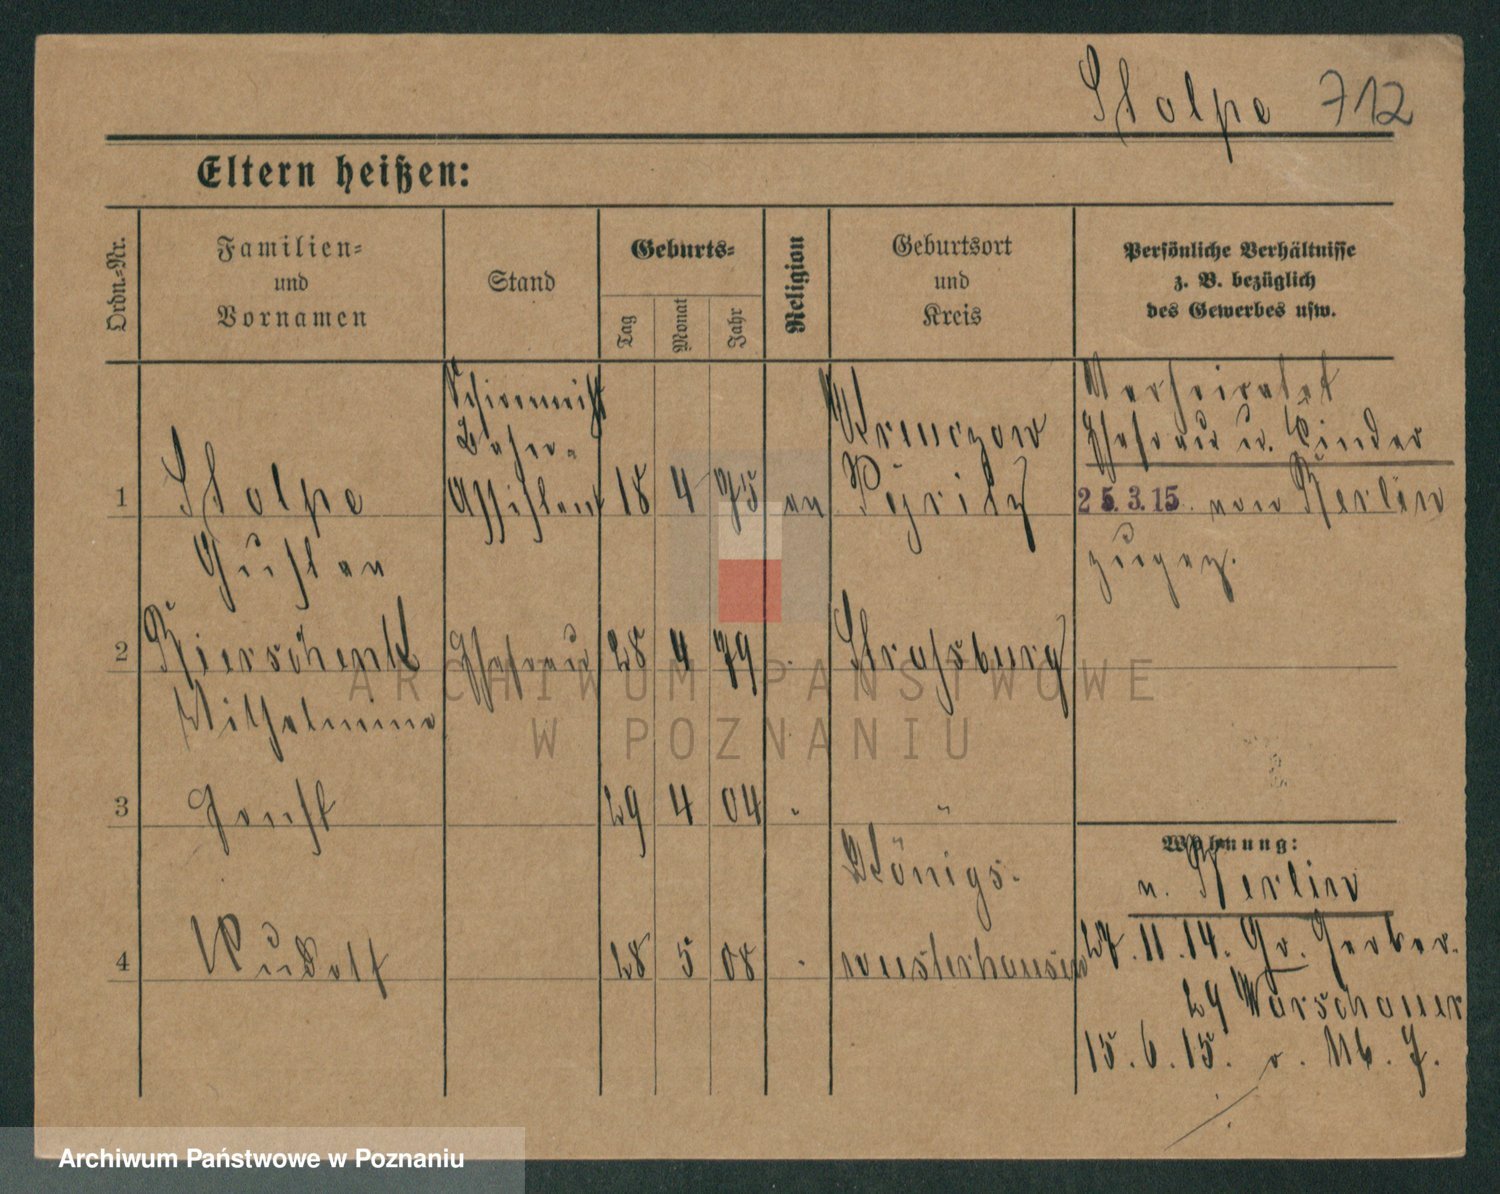 Stolpe 712
Eltern heißen:
Ordn.-Nr.
Familien-
und
Vornamen
Stand
Geburts-
Tag
Monat
Jahr
Religion
Geburtsort
und
Kreis
Persönliche Verhältnisse
z. B. bezüglich
des Gewerbes usw.
1
Stolpe
Gustav
Assistent
18 4 75 ev
Pyritz
Verheiratet
Ehefrau u. Kinder
25.3.15. von Berlin
zugez.
2
Bierschenk
Wilhelmine
Ehefrau
28 4 79
Strassburg
3
Horst
29 4 04
"
4
Rudolf
28 5 08
Königs-
wusterhausen
Wohnung:
n. Berlin
27.11.14. Gr. Gerber-
29 Warschauer
15.6.15.
ARCHIWUM PAŃSTWOWE
W POZNANIU
Archiwum Państwowe w Poznaniu